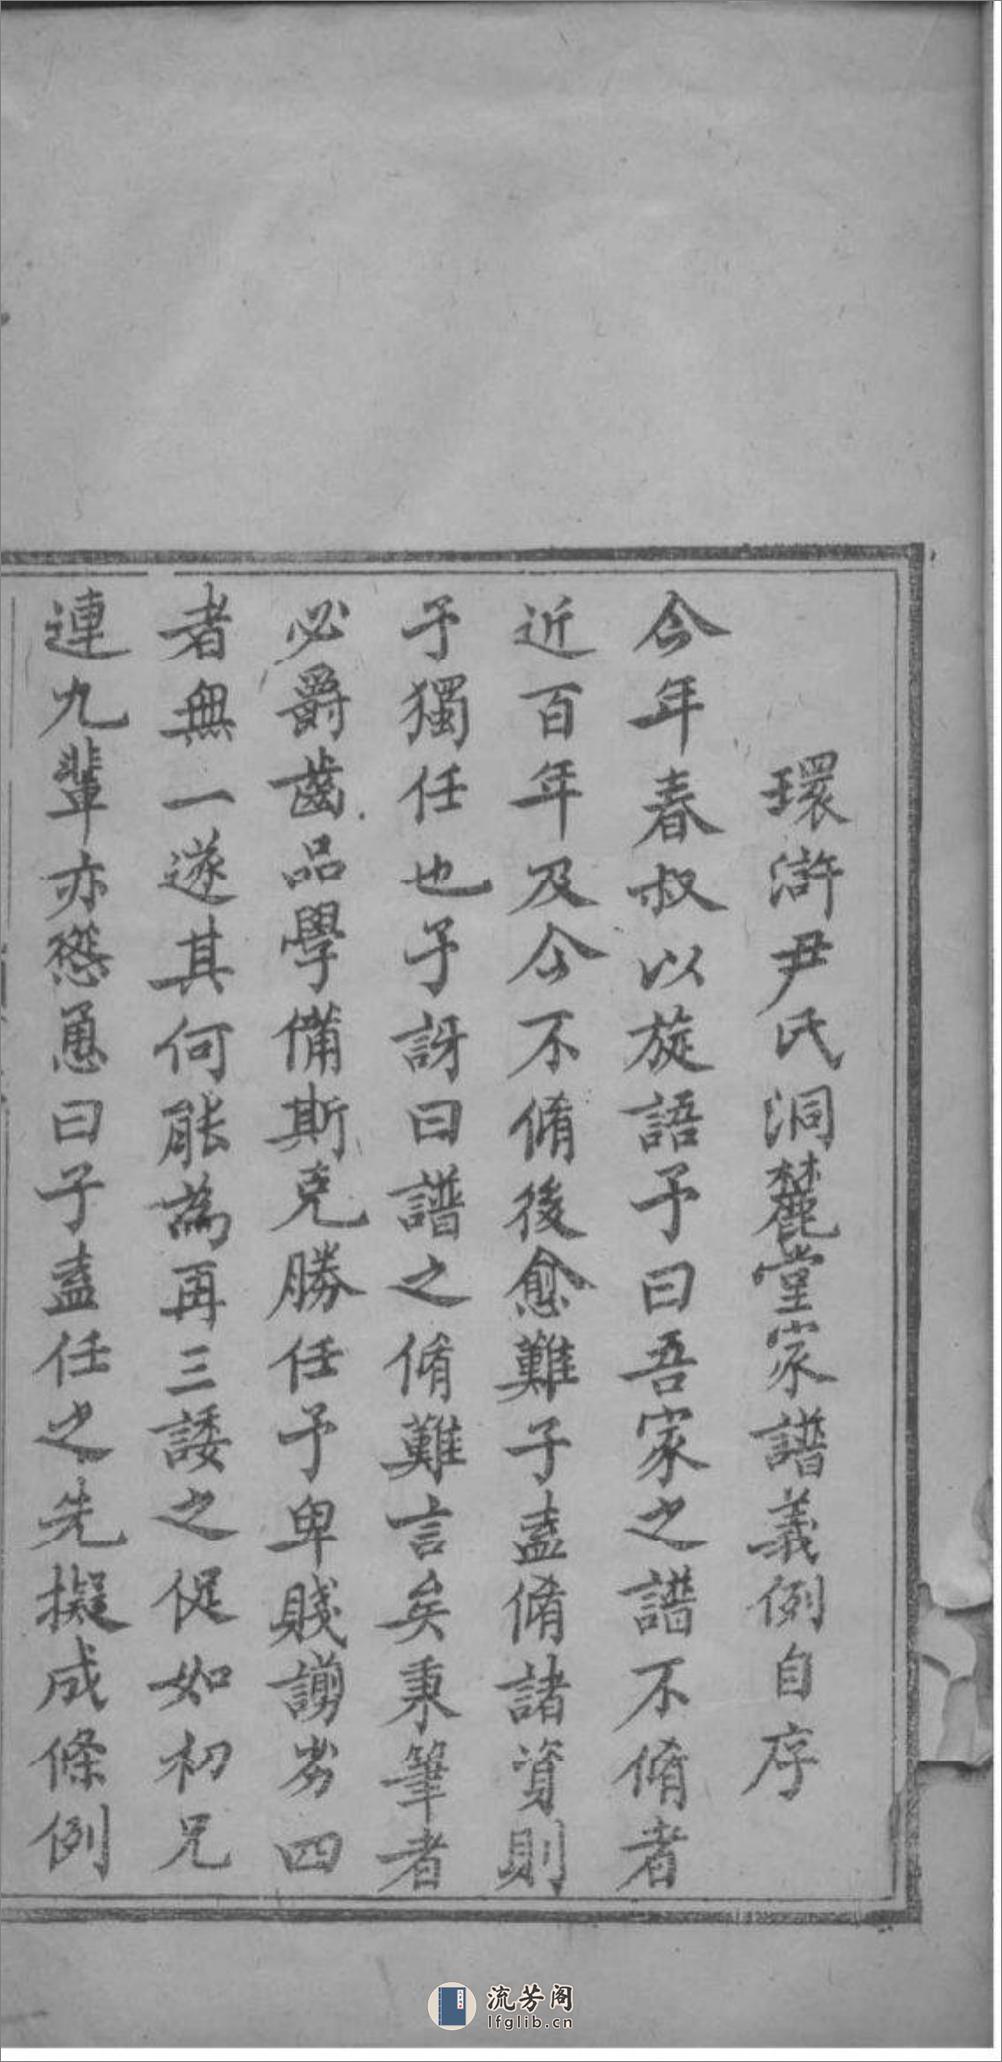 環滸尹氏洞麓堂家譜義例自序
今年春叔以旋語予曰吾家之譜不脩者
近百年及今不脩後愈難子盍脩諸資則
予獨任也予訝曰譜之脩難言矣秉筆者
必爵齒品學備斯克勝任予卑賤謭劣四
者無一遂其何能為再三諉之促如初兄
連九輩亦慫恿曰子盍任之先擬成條例
流芳阁
lfglib.cn